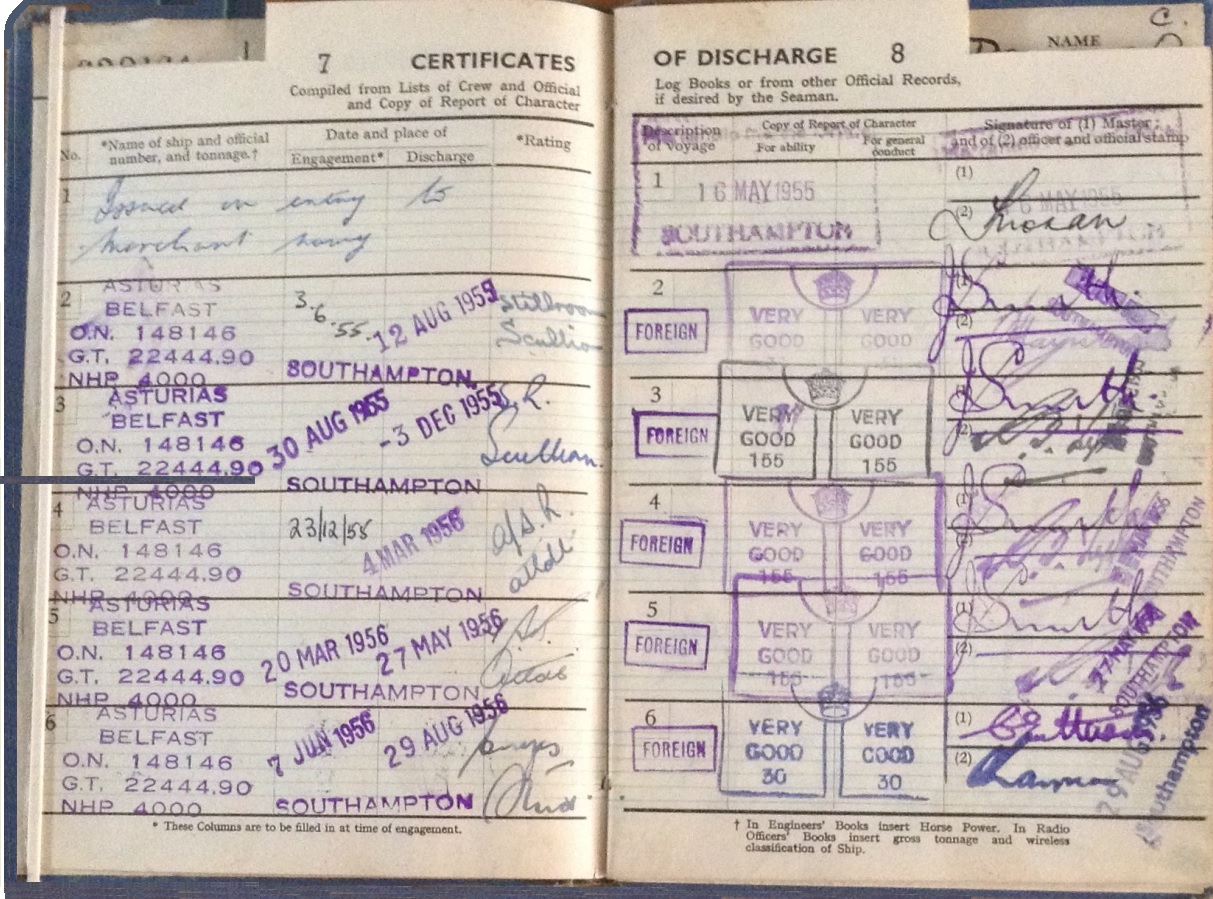 7 CERTIFICATES
Compiled from Lists of Crew and Official
and Copy of Report of Character
No.
*Name of ship and official
number, and tonnage.†
Date and place of
Engagement*
Discharge
*Rating
1
Issued on entry to
Merchant navy
2
ASTURIAS
BELFAST
O.N. 148146
G.T. 22444.90
NHP 4000
3.6.55.
12 AUG 1955
SOUTHAMPTON
Stillroom
3
ASTURIAS
BELFAST
O.N. 148146
G.T. 22444.90
NHP 4000
30 AUG 1955
-3 DEC 1955
SOUTHAMPTON
S.R.
4
ASTURIAS
BELFAST
O.N. 148146
G.T. 22444.90
NHP 4000
23/12/55
4 MAR 1956
SOUTHAMPTON
5
ASTURIAS
BELFAST
O.N. 148146
G.T. 22444.90
NHP 4000
20 MAR 1956
27 MAY 1956
SOUTHAMPTON
6
ASTURIAS
BELFAST
O.N. 148146
G.T. 22444.90
NHP 4000
7 JUN 1956
29 AUG 1956
SOUTHAMPTON
* These Columns are to be filled in at time of engagement.
C.
NAME
OF DISCHARGE 8
Log Books or from other Official Records,
if desired by the Seaman.
Description
of Voyage
Copy of Report of Character
For ability
For general
conduct
Signature of (1) Master;
and of (2) officer and official stamp
1
16 MAY 1955
SOUTHAMPTON
(1)
(2)
16 MAY 1955
SOUTHAMPTON
2
FOREIGN
VERY
GOOD
VERY
GOOD
(1)
(2)
3
FOREIGN
VERY
GOOD
155
VERY
GOOD
155
(2)
4
FOREIGN
VERY
GOOD
155
VERY
GOOD
155
(1)
(2)
SOUTHAMPTON
5
FOREIGN
VERY
GOOD
155
VERY
GOOD
155
(1)
(2)
27 MAY
SOUTHAMPTON
6
FOREIGN
VERY
GOOD
30
VERY
GOOD
30
(1)
(2)
29 AUG 1956
Southampton
† In Engineers' Books insert Horse Power. In Radio
Officers' Books insert gross tonnage and wireless
classification of Ship.